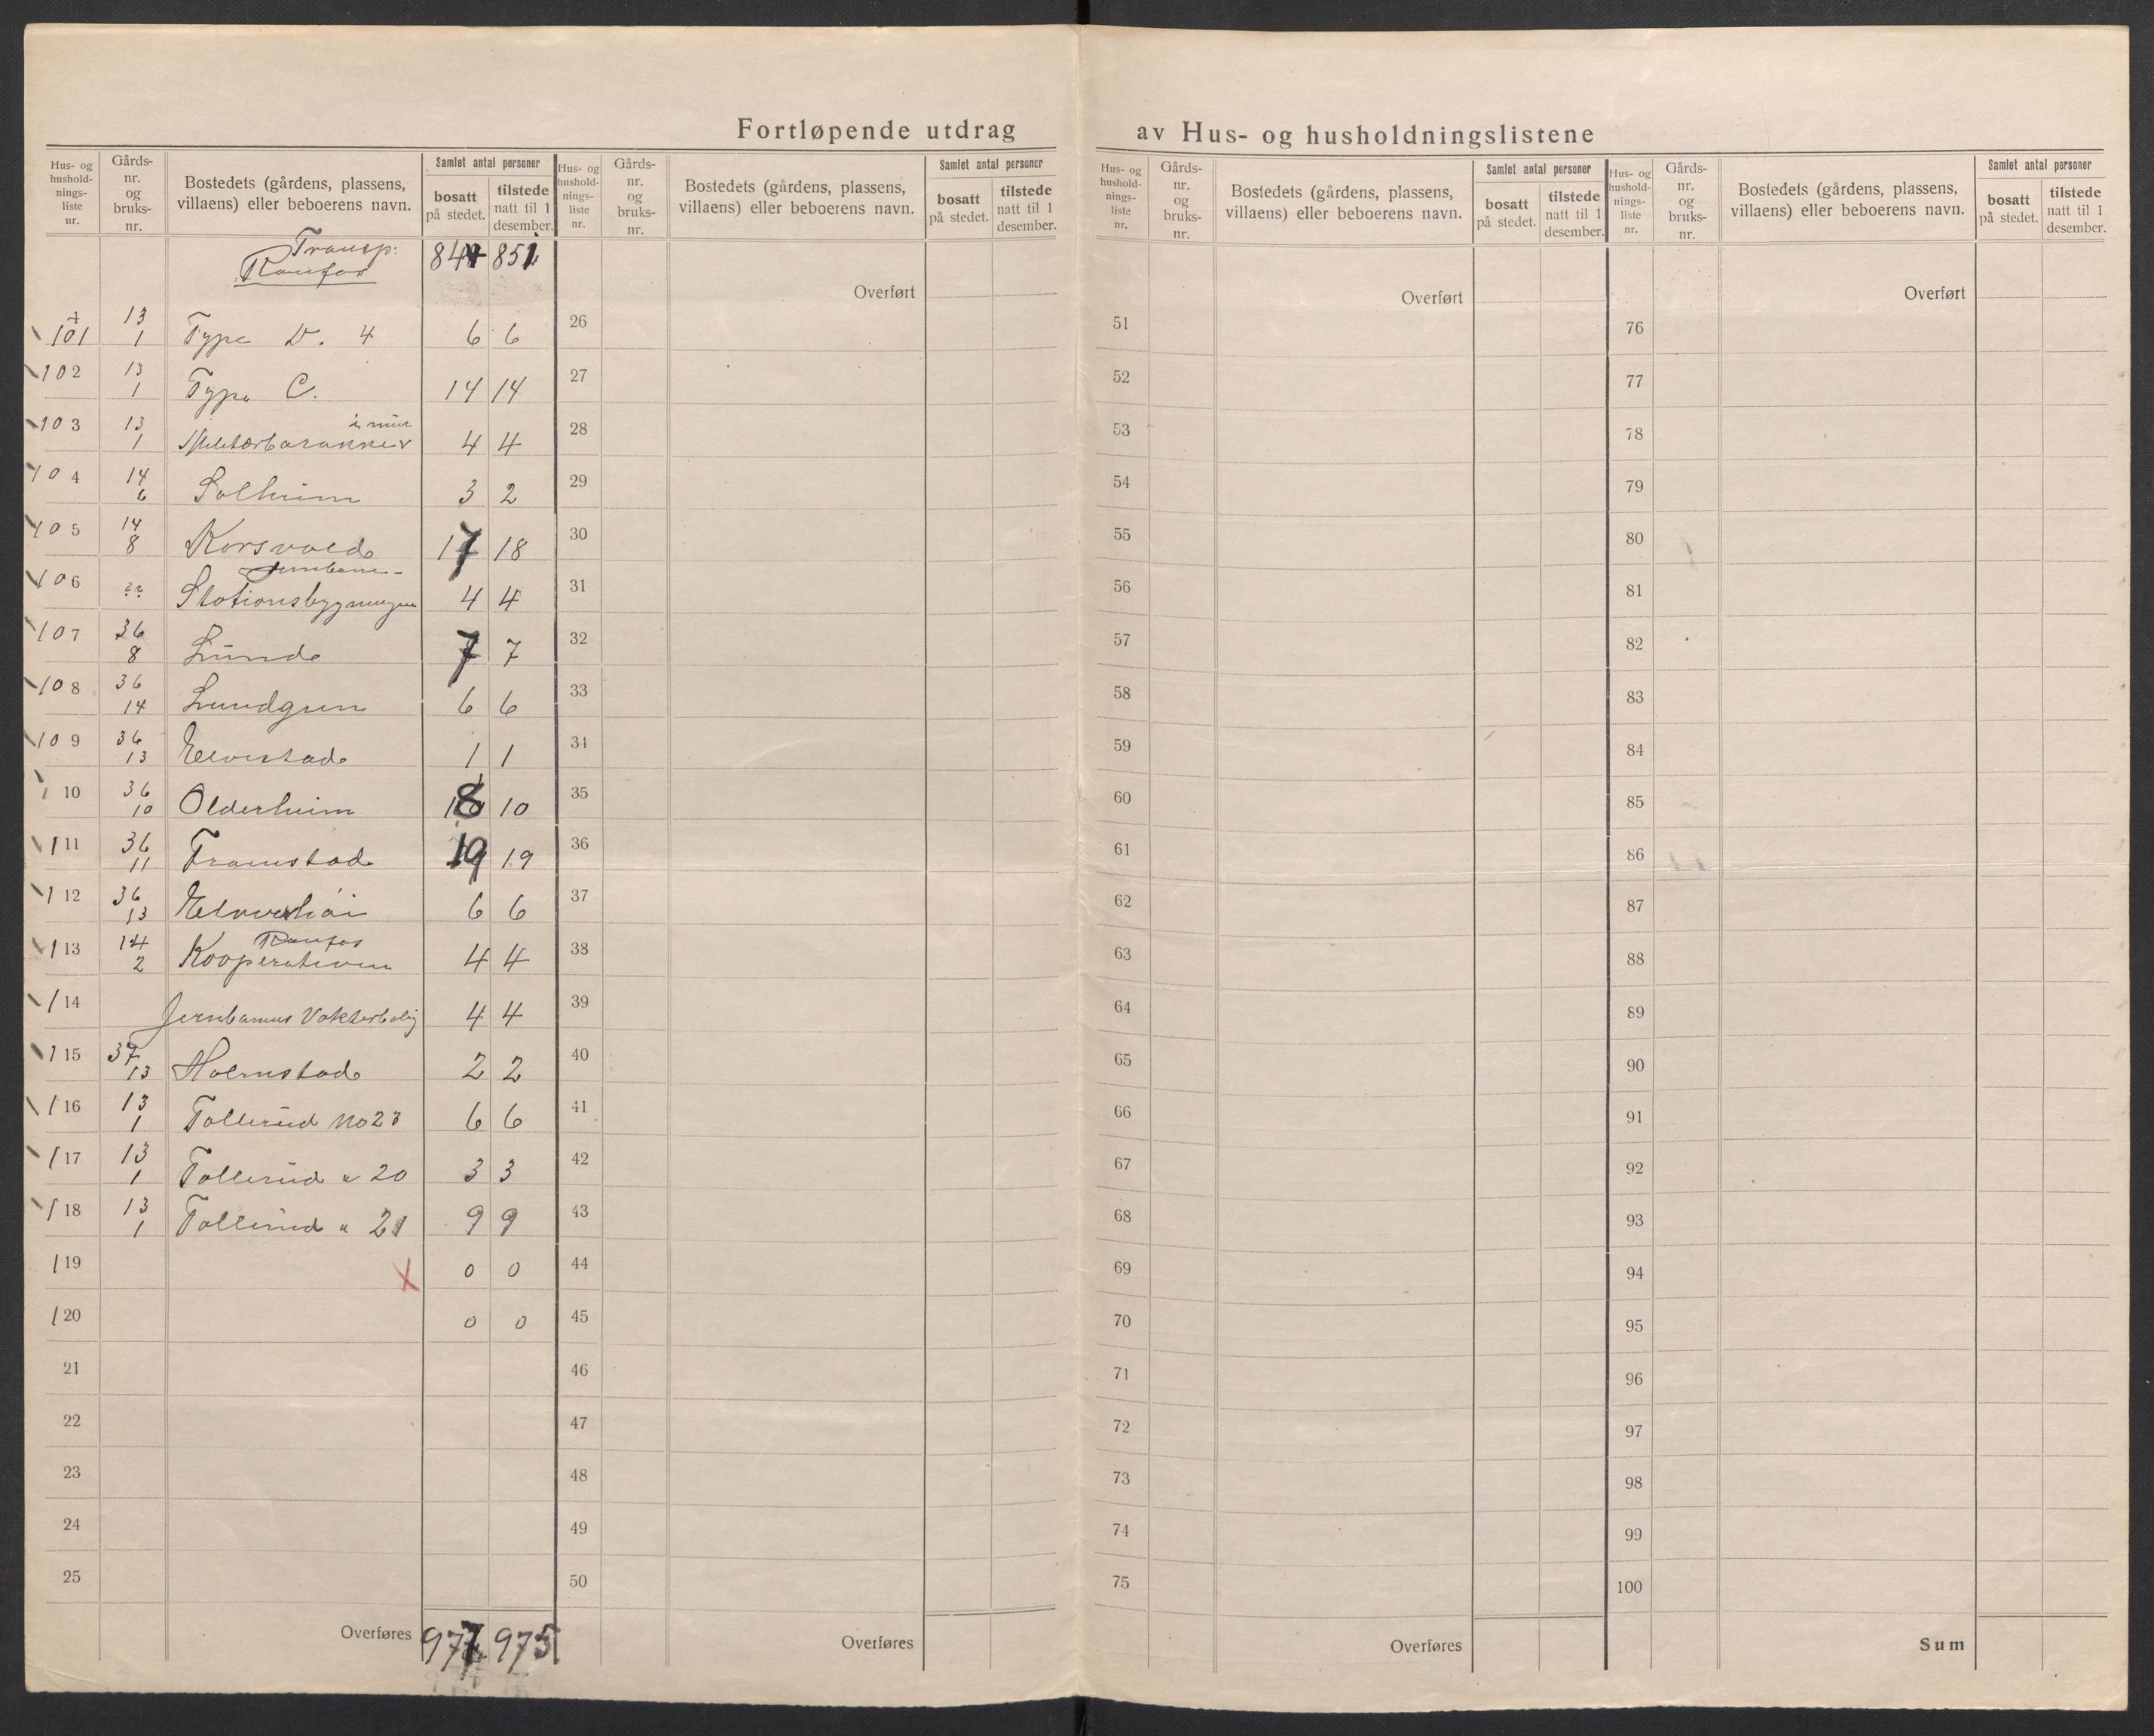 Fortløpende utdrag av Hus- og husholdningslistene
Hus- og husholdnings-liste nr. Gårds-nr. og bruks-nr. Bostedets (gårdens, plassens, villaens) eller beboerens navn. Samlet antal personer bosatt på stedet. tilstede natt til 1 desember.
Hus- og husholdnings-liste nr. Gårds-nr. og bruks-nr. Bostedets (gårdens, plassens, villaens) eller beboerens navn. Samlet antal personer bosatt på stedet. tilstede natt til 1 desember.
Hus- og husholdnings-liste nr. Gårds-nr. og bruks-nr. Bostedets (gårdens, plassens, villaens) eller beboerens navn. Samlet antal personer bosatt på stedet. tilstede natt til 1 desember.
Hus- og husholdnings-liste nr. Gårds-nr. og bruks-nr. Bostedets (gårdens, plassens, villaens) eller beboerens navn. Samlet antal personer bosatt på stedet. tilstede natt til 1 desember.
Transp:
Raufos 851
101 13 1 Type D. 4 6 6
102 13 1 Type C. 14 14
103 13 1 Militærbarakker i mur 4 4
104 14 6 Solheim 3 2
105 14 8 Korsvold 17 18
106 Jernbane-
Stationsbygningen 4 4
107 36 8 Lunde 7 7
108 36 14 Lundgren 6 6
109 36 13 Elvestad 1 1
110 36 10 Olderheim 8 10
111 36 11 Framstad 19 19
112 36 13 Elvershøi 6 6
113 14 2 Raufos
Kooperativen 4 4
114 Jernbanens Vokterbolig 4 4
115 37 13 Holmstad 2 2
116 13 1 Tollerud No 23 6 6
117 13 1 Tollerud " 20 3 3
118 13 1 Tollerud " 21 9 9
119 X 0 0
120 0 0
21
22
23
24
25
Overføres 977 975
Overført
26
27
28
29
30
31
32
33
34
35
36
37
38
39
40
41
42
43
44
45
46
47
48
49
50
Overføres
Overført
51
52
53
54
55
56
57
58
59
60
61
62
63
64
65
66
67
68
69
70
71
72
73
74
75
Overføres
Overført
76
77
78
79
80
81
82
83
84
85
86
87
88
89
90
91
92
93
94
95
96
97
98
99
100
Sum